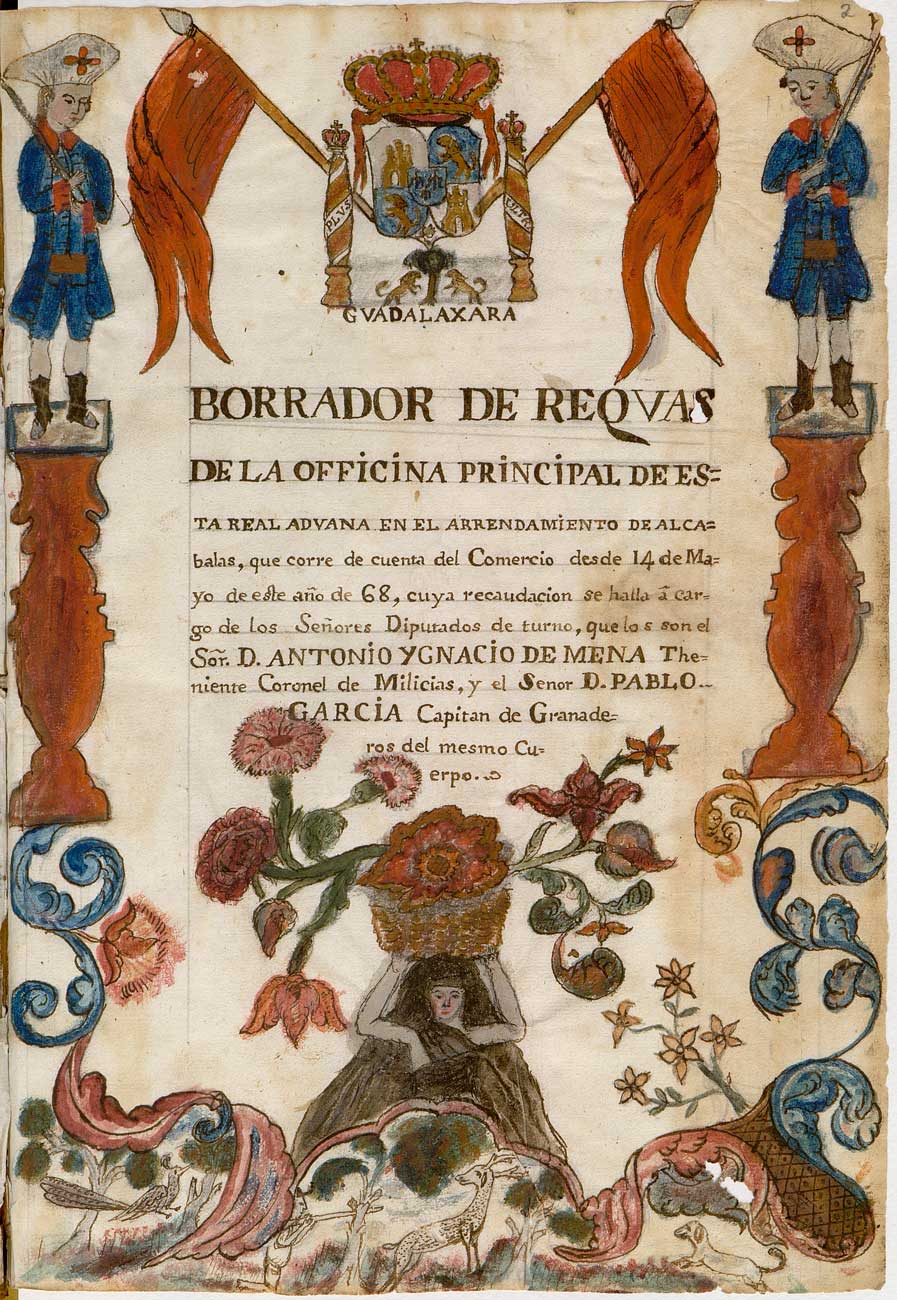 2
PLUS
ULTRA
GVADALAXARA
BORRADOR DE REQVAS
DE LA OFFICINA PRINCIPAL DE ES=
TA REAL ADVANA EN EL ARRENDAMIENTO DE ALCA=
balas, que corre de cuenta del Comercio desde 14 de Ma=
yo de este año de 68, cuya recaudacion se halla â car=
go de los Señores Diputados de turno, que los son el
Sor. D. ANTONIO YGNACIO DE MENA The=
niente Coronel de Milicias, y el Senor D. PABLO
GARCIA Capitan de Granade=
ros del mesmo Cu=
erpo.